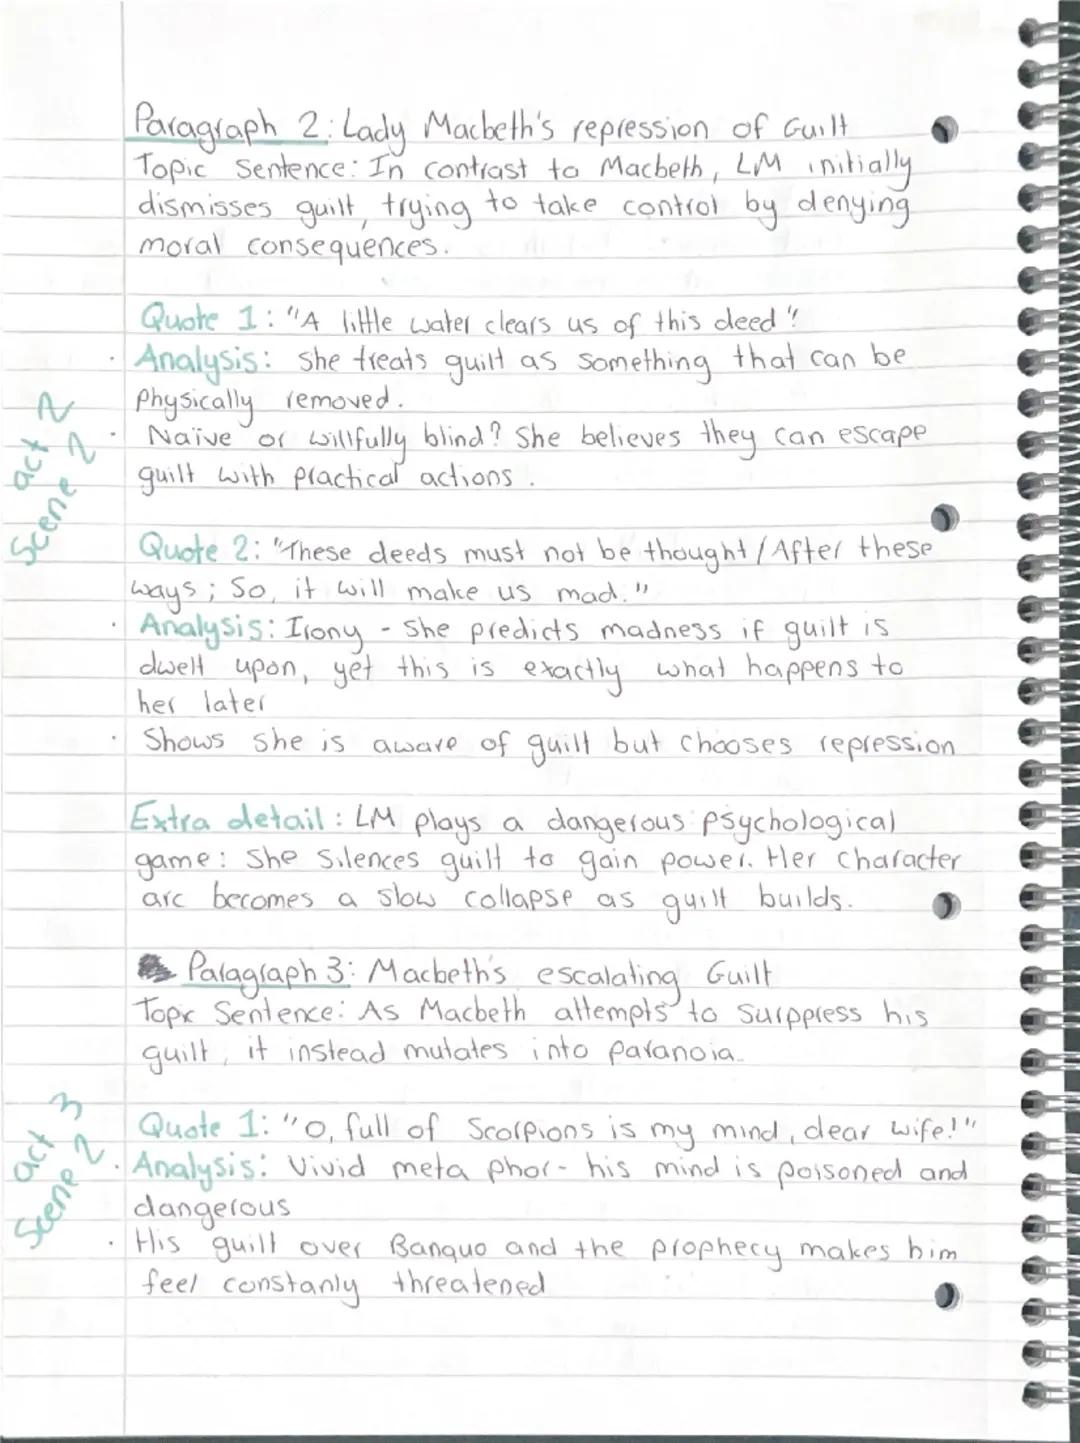 Paragraph 2: Lady Macbeth's repression of Guilt
Topic Sentence: In contrast to Macbeth, LM initially
dismisses guilt, trying to take control by denying
moral consequences.
Quote 1: "A little water clears us of this deed".
Analysis: She treats guilt as something that can be
physically removed.
act 2
Scene 2
· Naïve or willfully blind? She believes they can escape
guilt with practical actions.
Quote 2: "These deeds must not be thought / After these
ways; So, it will make us mad."
· Analysis: Irony - She predicts madness if guilt is
dwelt upon, yet this is exactly what happens to
her later
· Shows she is aware of guilt but chooses repression
Extra detail: LM plays a dangerous psychological
game: She silences guilt to gain power. Her character
arc becomes a slow collapse as guilt builds.
Paragraph 3: Macbeth's escalating Guilt
Topic Sentence: As Macbeth attempts to Surppress his
guilt, it instead mutates into paranoia..
act 3
Scene 2
Quote 1: "O, full of Scorpions is my mind, dear wife!"
· Analysis: Vivid meta phor- his mind is poisoned and
dangerous
· His guilt over Banquo and the prophecy makes him
feel constanly threatened